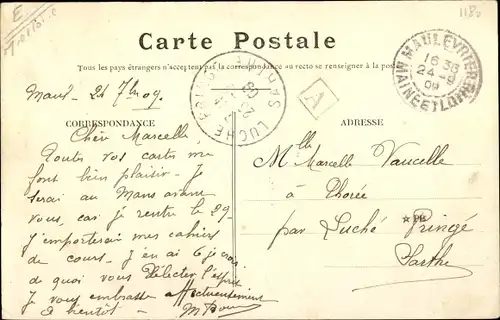 E
118
Carte Postale
Tous les pays étrangers n'acceptent pas la correspondance au recto se renseigner à la poste
MAULEVRIER
16 30
24 -9
09
MAINE ET LOIRE
LUCHE PRINGE
A
Maul. 24 7bre 09.
CORRESPONDANCE
ADRESSE
Chère Marcelle,
Toutes vos cartes me
font bien plaisir. Je
serai au Mans avant
vous, car je rentre le 29.
J'emporterai mes cahiers
de cours. J'en ai 6 je crois
de quoi vous délecter l'esprit
Je vous embrasse affectueusement
à bientôt.
Mlle Marcelle Vaucelle
à Thorée
par Luché Pringé
Sarthe